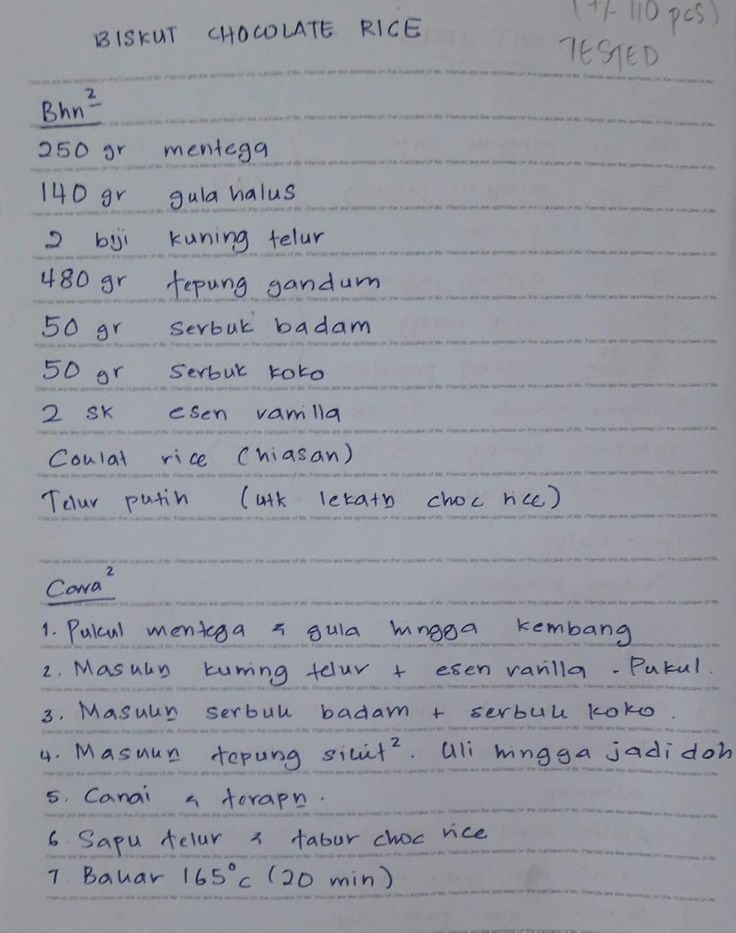 (+/- 110 pcs)
BISKUT CHOCOLATE RICE
TESTED
Bhn²
250 gr mentega
140 gr gula halus
2 biji kuning telur
480 gr tepung gandum
50 gr serbuk badam
50 gr serbuk koko
2 sk esen vanilla
Coulat rice (hiasan)
Telur putih (utk lekatn choc rice)
Cara²
1. Pukul mentega & gula hingga kembang
2. Masukn kuning telur + esen vanilla - Pukul.
3. Masukn serbuk badam + serbuk koko.
4. Masukn tepung sikit². Uli hingga jadi doh
5. Canai & terapn.
6 Sapu telur & tabur choc rice
7 Bakar 165°c (20 min)